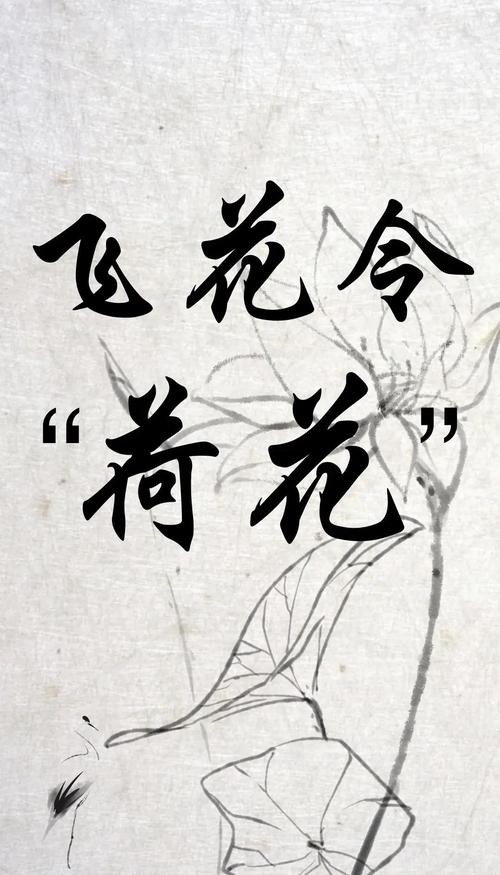 飞花令
“荷花”